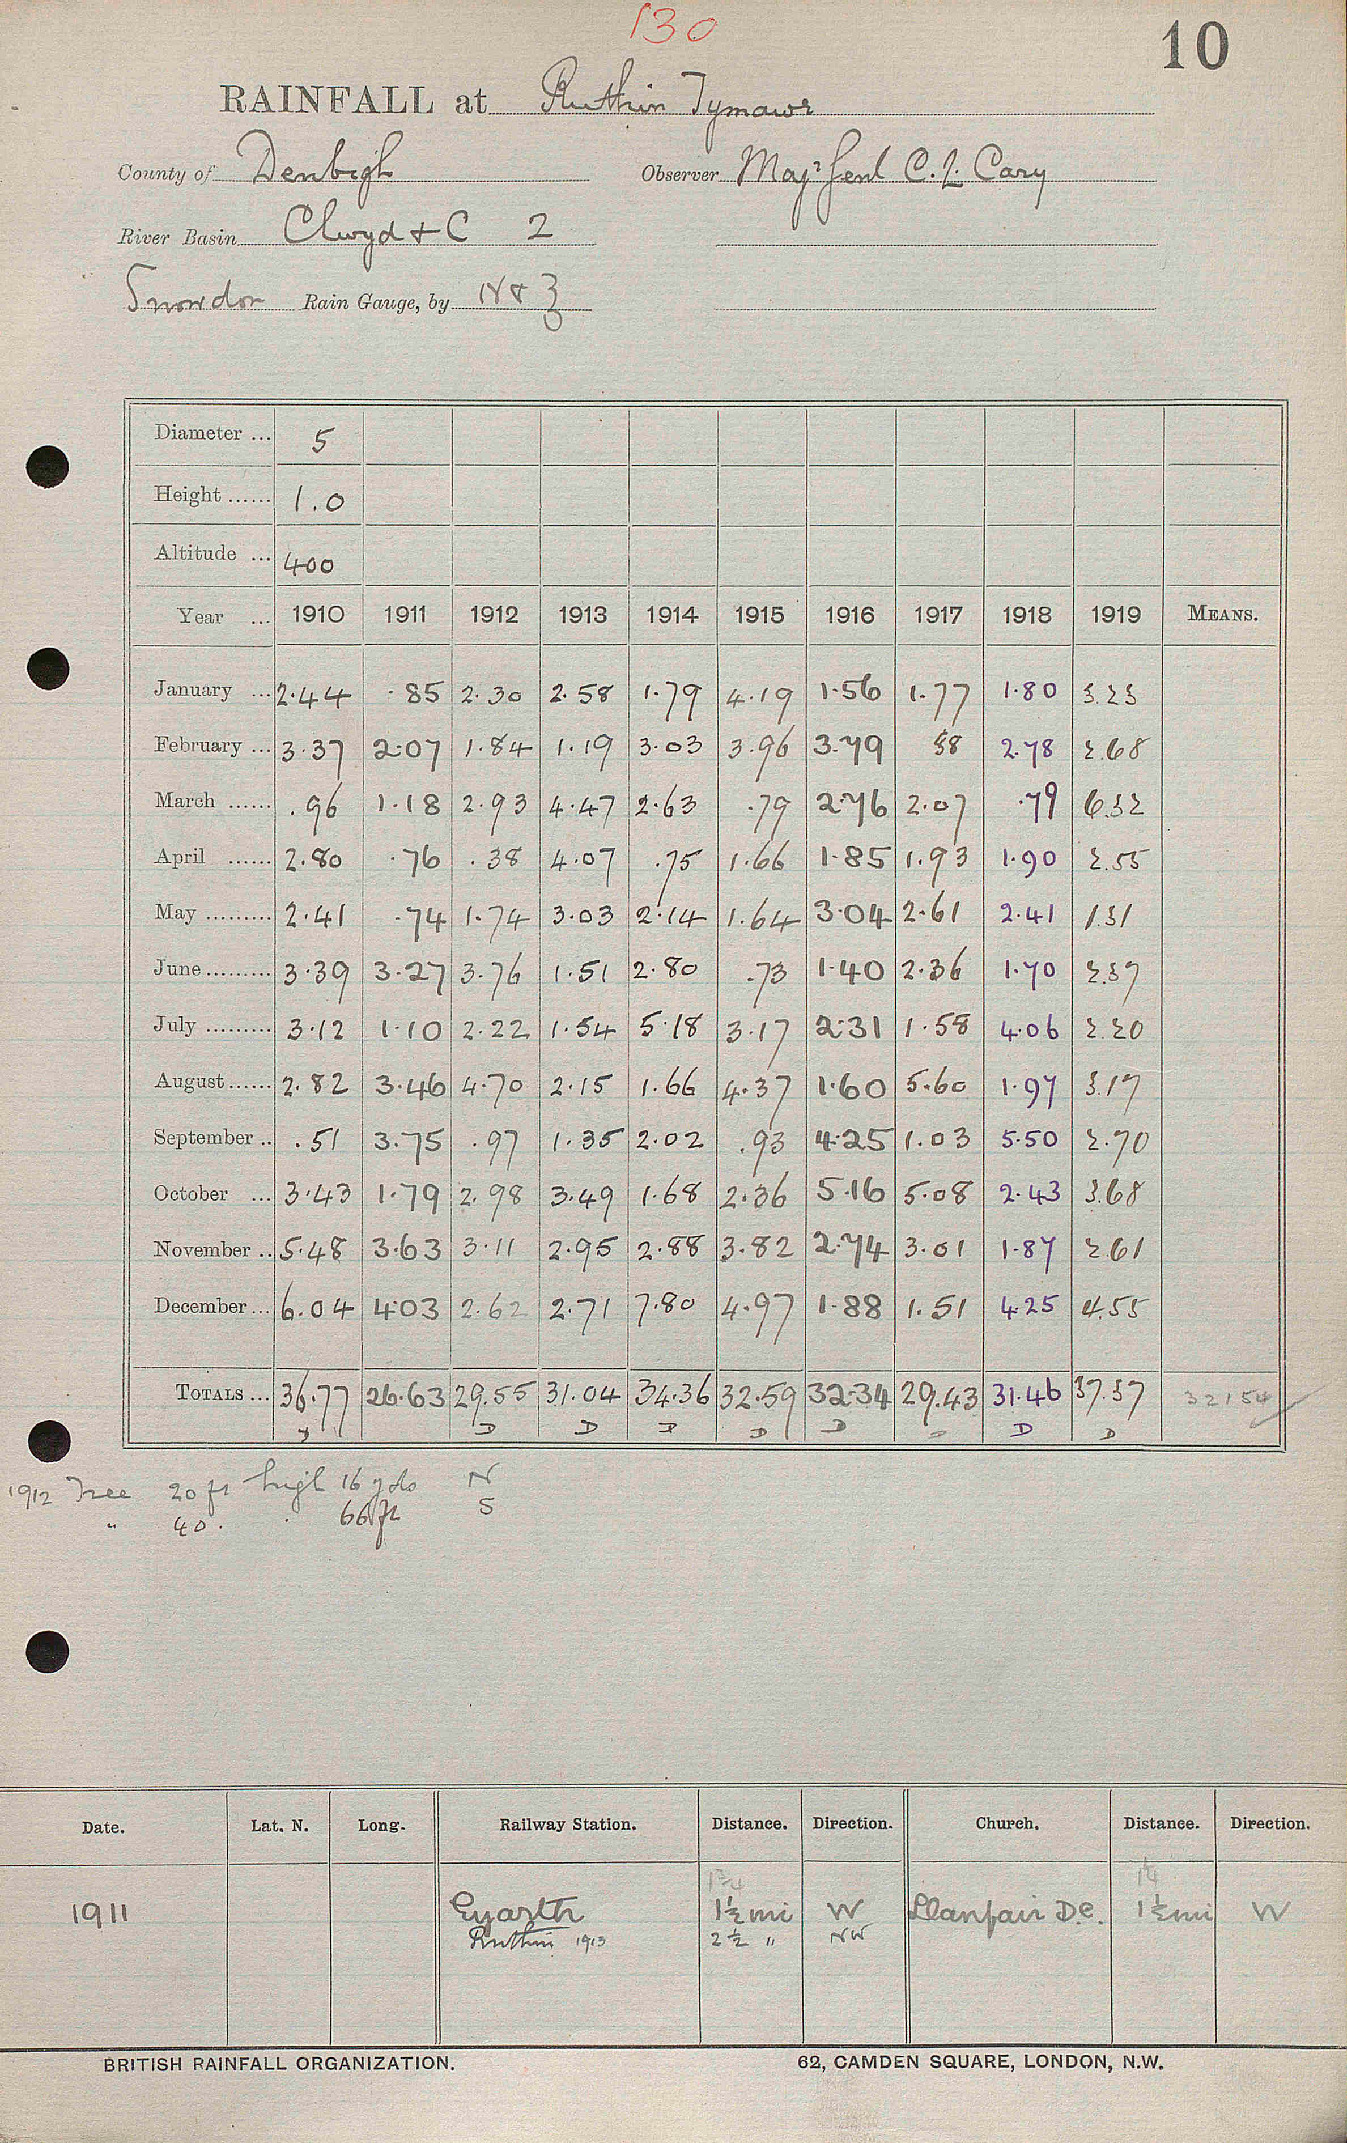 130
10
RAINFALL at Ruthin Tymawr
County of Denbigh Observer Maj^r Genl C. L. Cary
River Basin Clwyd + C 2
Snowdon Rain Gauge, by N & Z
Diameter ... 5
Height ...... 1.0
Altitude ... 400
Year ... 1910 1911 1912 1913 1914 1915 1916 1917 1918 1919 MEANS.
January ... 2.44 .85 2.30 2.58 1.79 4.19 1.56 1.77 1.80 3.23
February ... 3.37 2.07 1.84 1.19 3.03 3.96 3.79 88 2.78 2.68
March ...... .96 1.18 2.93 4.47 2.63 .79 2.76 2.07 .79 6.32
April ...... 2.80 .76 .38 4.07 .75 1.66 1.85 1.93 1.90 2.55
May ......... 2.41 .74 1.74 3.03 2.14 1.64 3.04 2.61 2.41 1.31
June ......... 3.39 3.27 3.76 1.51 2.80 .73 1.40 2.36 1.70 2.37
July ......... 3.12 1.10 2.22 1.54 5.18 3.17 2.31 1.58 4.06 2.20
August ...... 2.82 3.46 4.70 2.15 1.66 4.37 1.60 5.60 1.97 3.17
September .. .51 3.75 .97 1.35 2.02 .93 4.25 1.03 5.50 2.70
October ... 3.43 1.79 2.98 3.49 1.68 2.36 5.16 5.08 2.43 3.68
November .. 5.48 3.63 3.11 2.95 2.88 3.82 2.74 3.01 1.87 2.61
December ... 6.04 4.03 2.62 2.71 7.80 4.97 1.88 1.51 4.25 4.55
TOTALS ... 36.77 26.63 29.55 31.04 34.36 32.59 32.34 29.43 31.46 37.37 32154
D D D D D D D
1912 Tree 20 ft high 16 yds N
" 40. 66 ft S
Date. Lat. N. Long. Railway Station. Distance. Direction. Church. Distance. Direction.
1¾ 1¼
1911 Eyarth 1½ mi W Llanfair D.C. 1½ mi W
Ruthin 1913 2½ " NW
BRITISH RAINFALL ORGANIZATION. 62, CAMDEN SQUARE, LONDON, N.W.